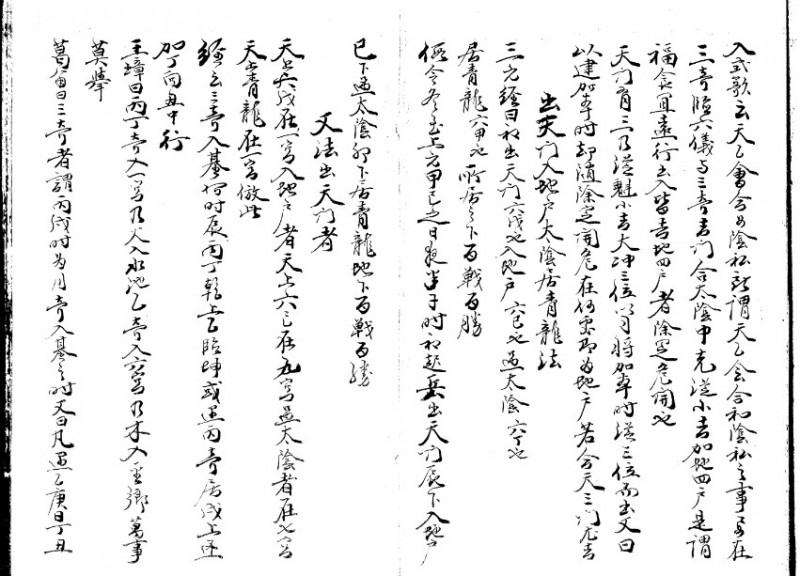 入式歌云天乙會合女陰私所謂天乙会合和陰私之事只在
三奇臨六儀与三奇吉门合太陰中先從小吉加地四户是謂
福食宜遠行出入皆吉地四户者除定危開也
天门有三乃從魁小吉太冲三位以月將加本時從三位而出又曰
以建加本時却随除定開危在何処即為地户若合天三门尤吉
出天门入地户太陰居青龍法
三元経曰初出天门六戊也入地户六己也過太陰六丁也
居青龍六甲也所居之下百戦百勝
仮令冬至上元甲己之日夜半子時初起兵出天门辰下入地户
巳下過太陰卯下居青龍地下百戦百勝
又法出天门者
天上六戊在一宮入地户者天上六己在九宮過太陰者在七宮
天上青龍在一宮倣此
経云三奇入墓何時辰丙丁乾上乙臨坤或遇丙奇居戌上
加丁向丑中行
王璋曰丙丁奇入一宮乃火入水池乙奇入六宮乃木入金郷萬事
莫挙
葛洪曰三奇者謂丙戌時為月奇入墓之時又曰凡遇乙庚日丁丑